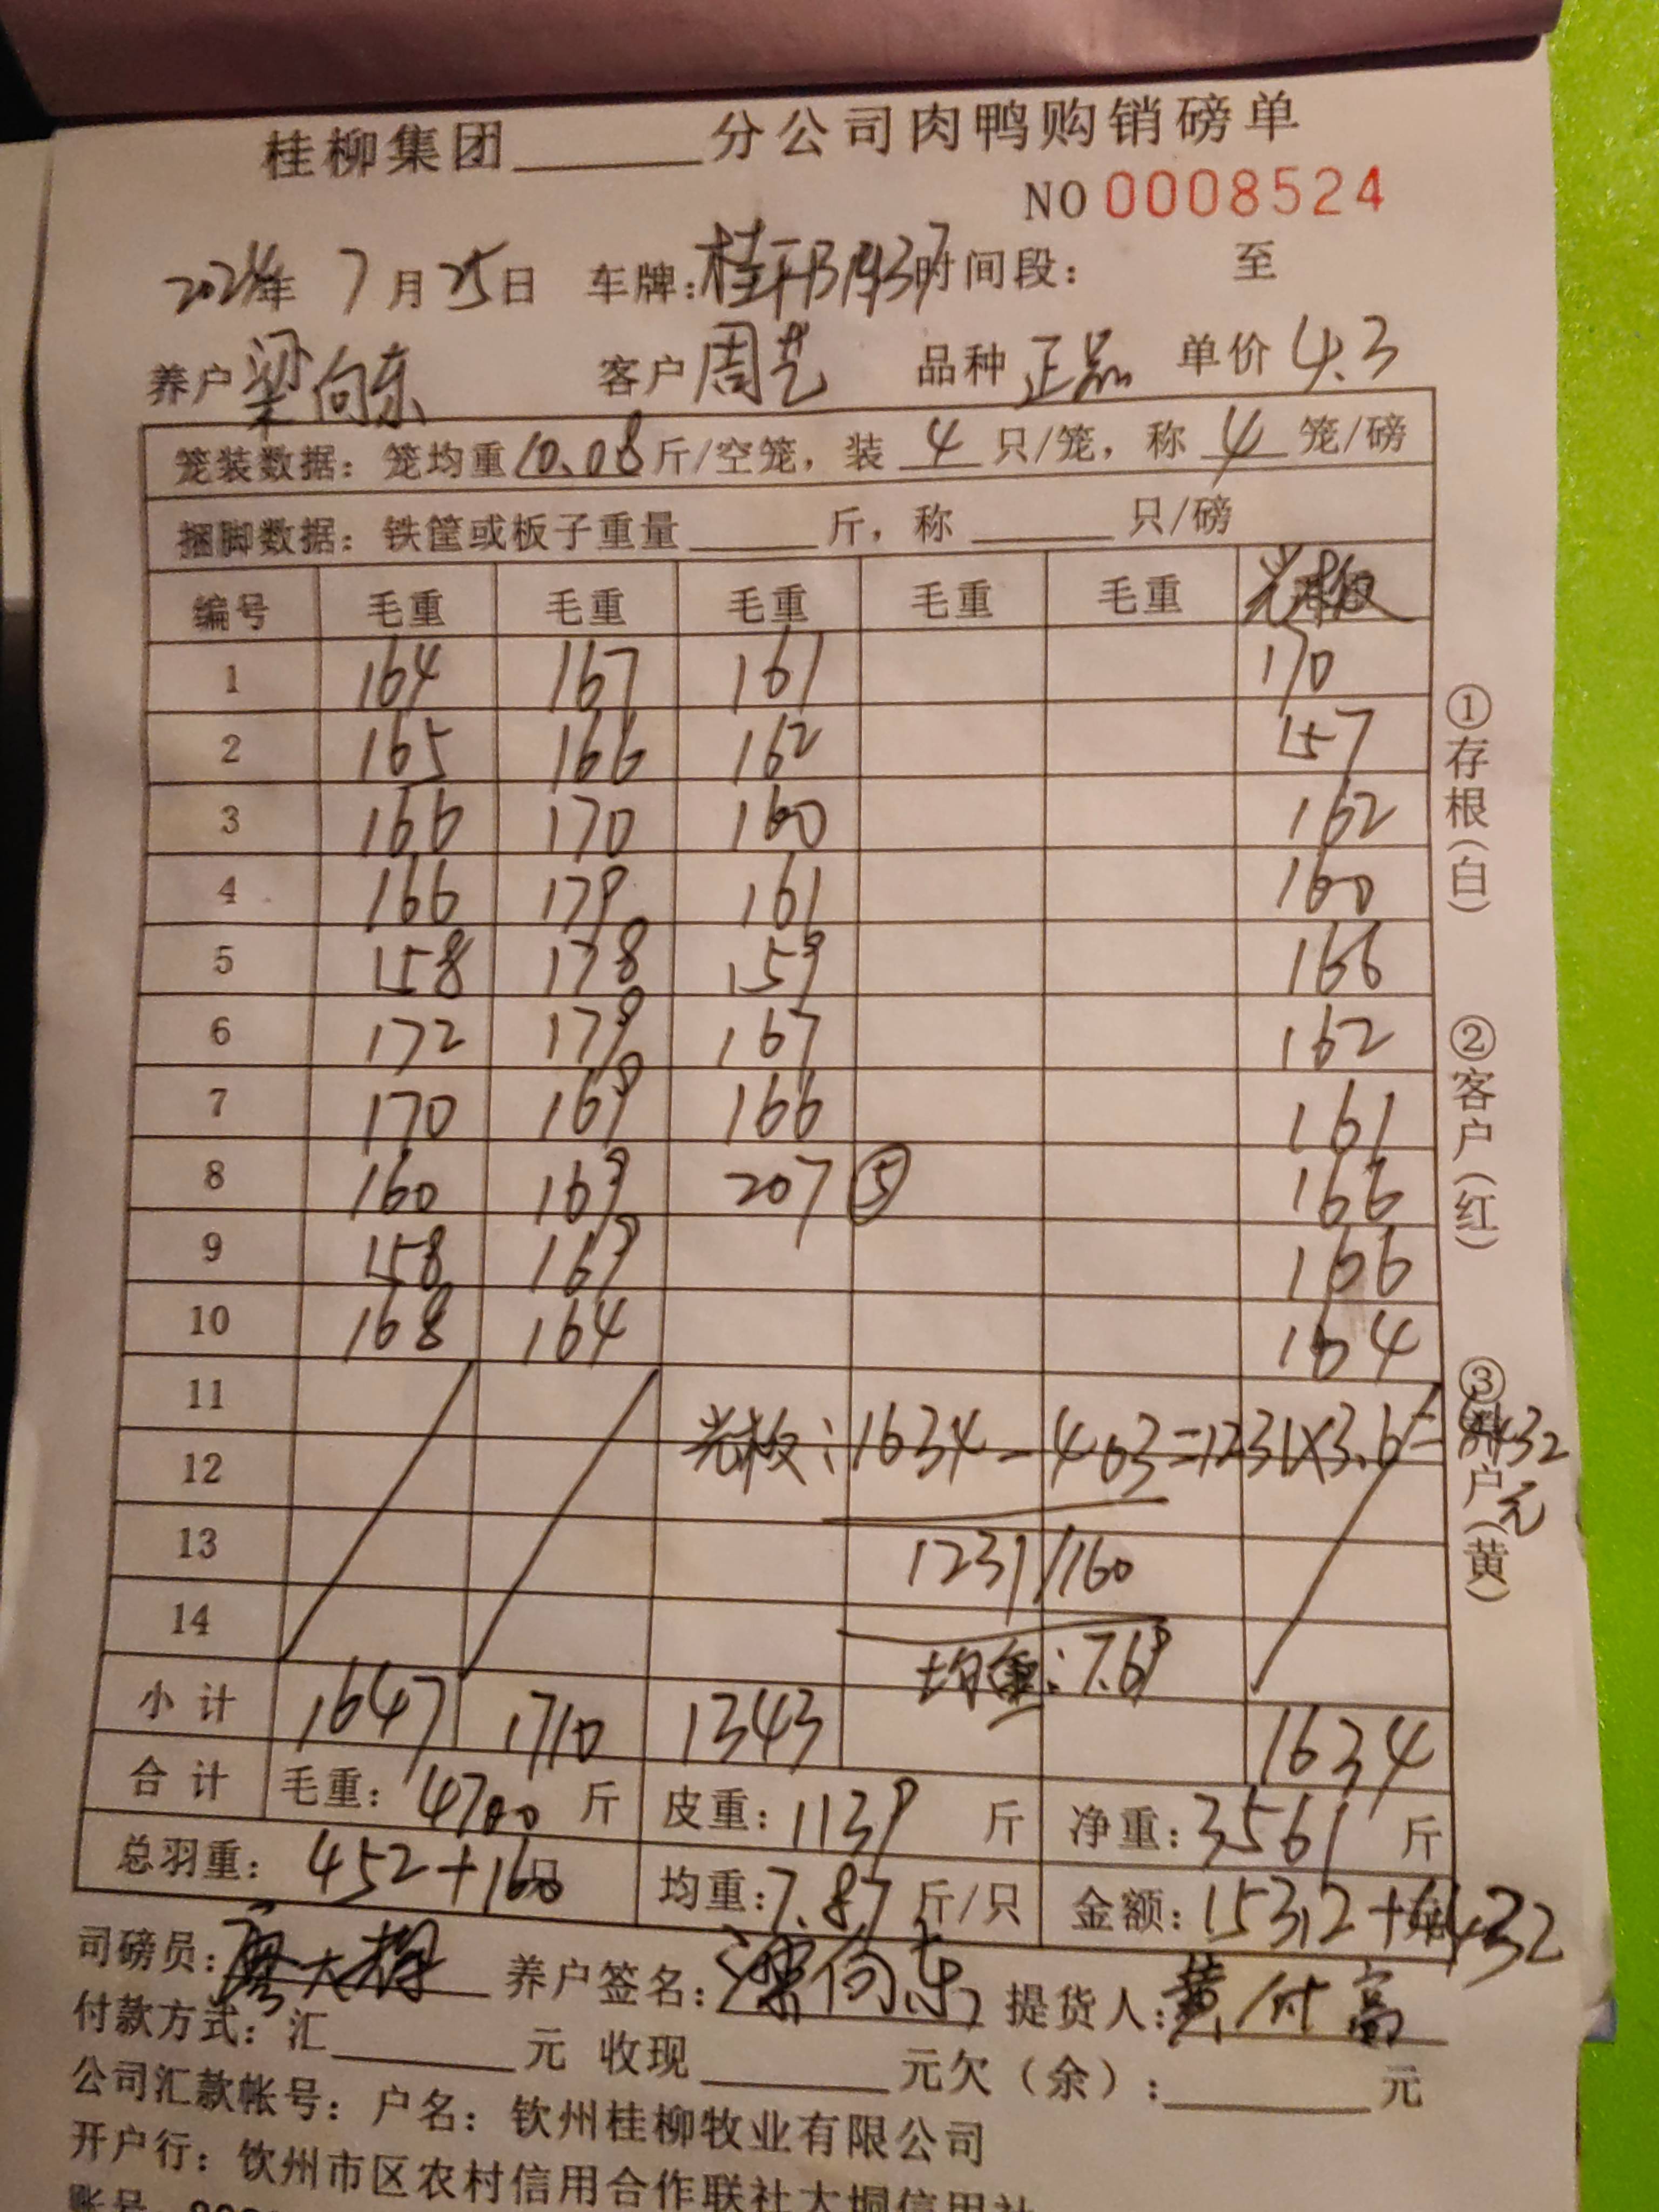 桂柳集团______分公司肉鸭购销磅单
NO 0008524
2024年 7月25日 车牌: 时间段: 至
养户 梁向东 客户 周艺 品种 正品 单价 4.3
笼装数据: 笼均重10.08斤/空笼, 装 4 只/笼, 称 4 笼/磅
捆脚数据: 铁筐或板子重量______斤, 称______只/磅
编号 毛重 毛重 毛重 毛重 毛重 光板
1 164 167 161 170
2 165 166 162 157
3 166 170 160 162
4 166 179 161 160
5 158 178 159 166
6 172 179 167 162
7 170 169 166 161
8 160 169 207 ⑤ 166
9 158 169 166
10 168 164 164
11
光板:1634-403=1231×3.6=4432元
12
13 1231/160
14
均重:7.69
小计 1647 1710 1343 1634
合计 毛重: 4700 斤 皮重: 1139 斤 净重: 3561 斤
总羽重: 452+160只 均重: 7.87 斤/只 金额: 15312+4432
司磅员: 养户签名: 梁向东 提货人: 黄付高
付款方式: 汇______元 收现______元欠(余):______元
公司汇款帐号: 户名: 钦州桂柳牧业有限公司
开户行: 钦州市区农村信用合作联社大垌信用社
①存根(白)
②客户(红)
③ 户(黄)